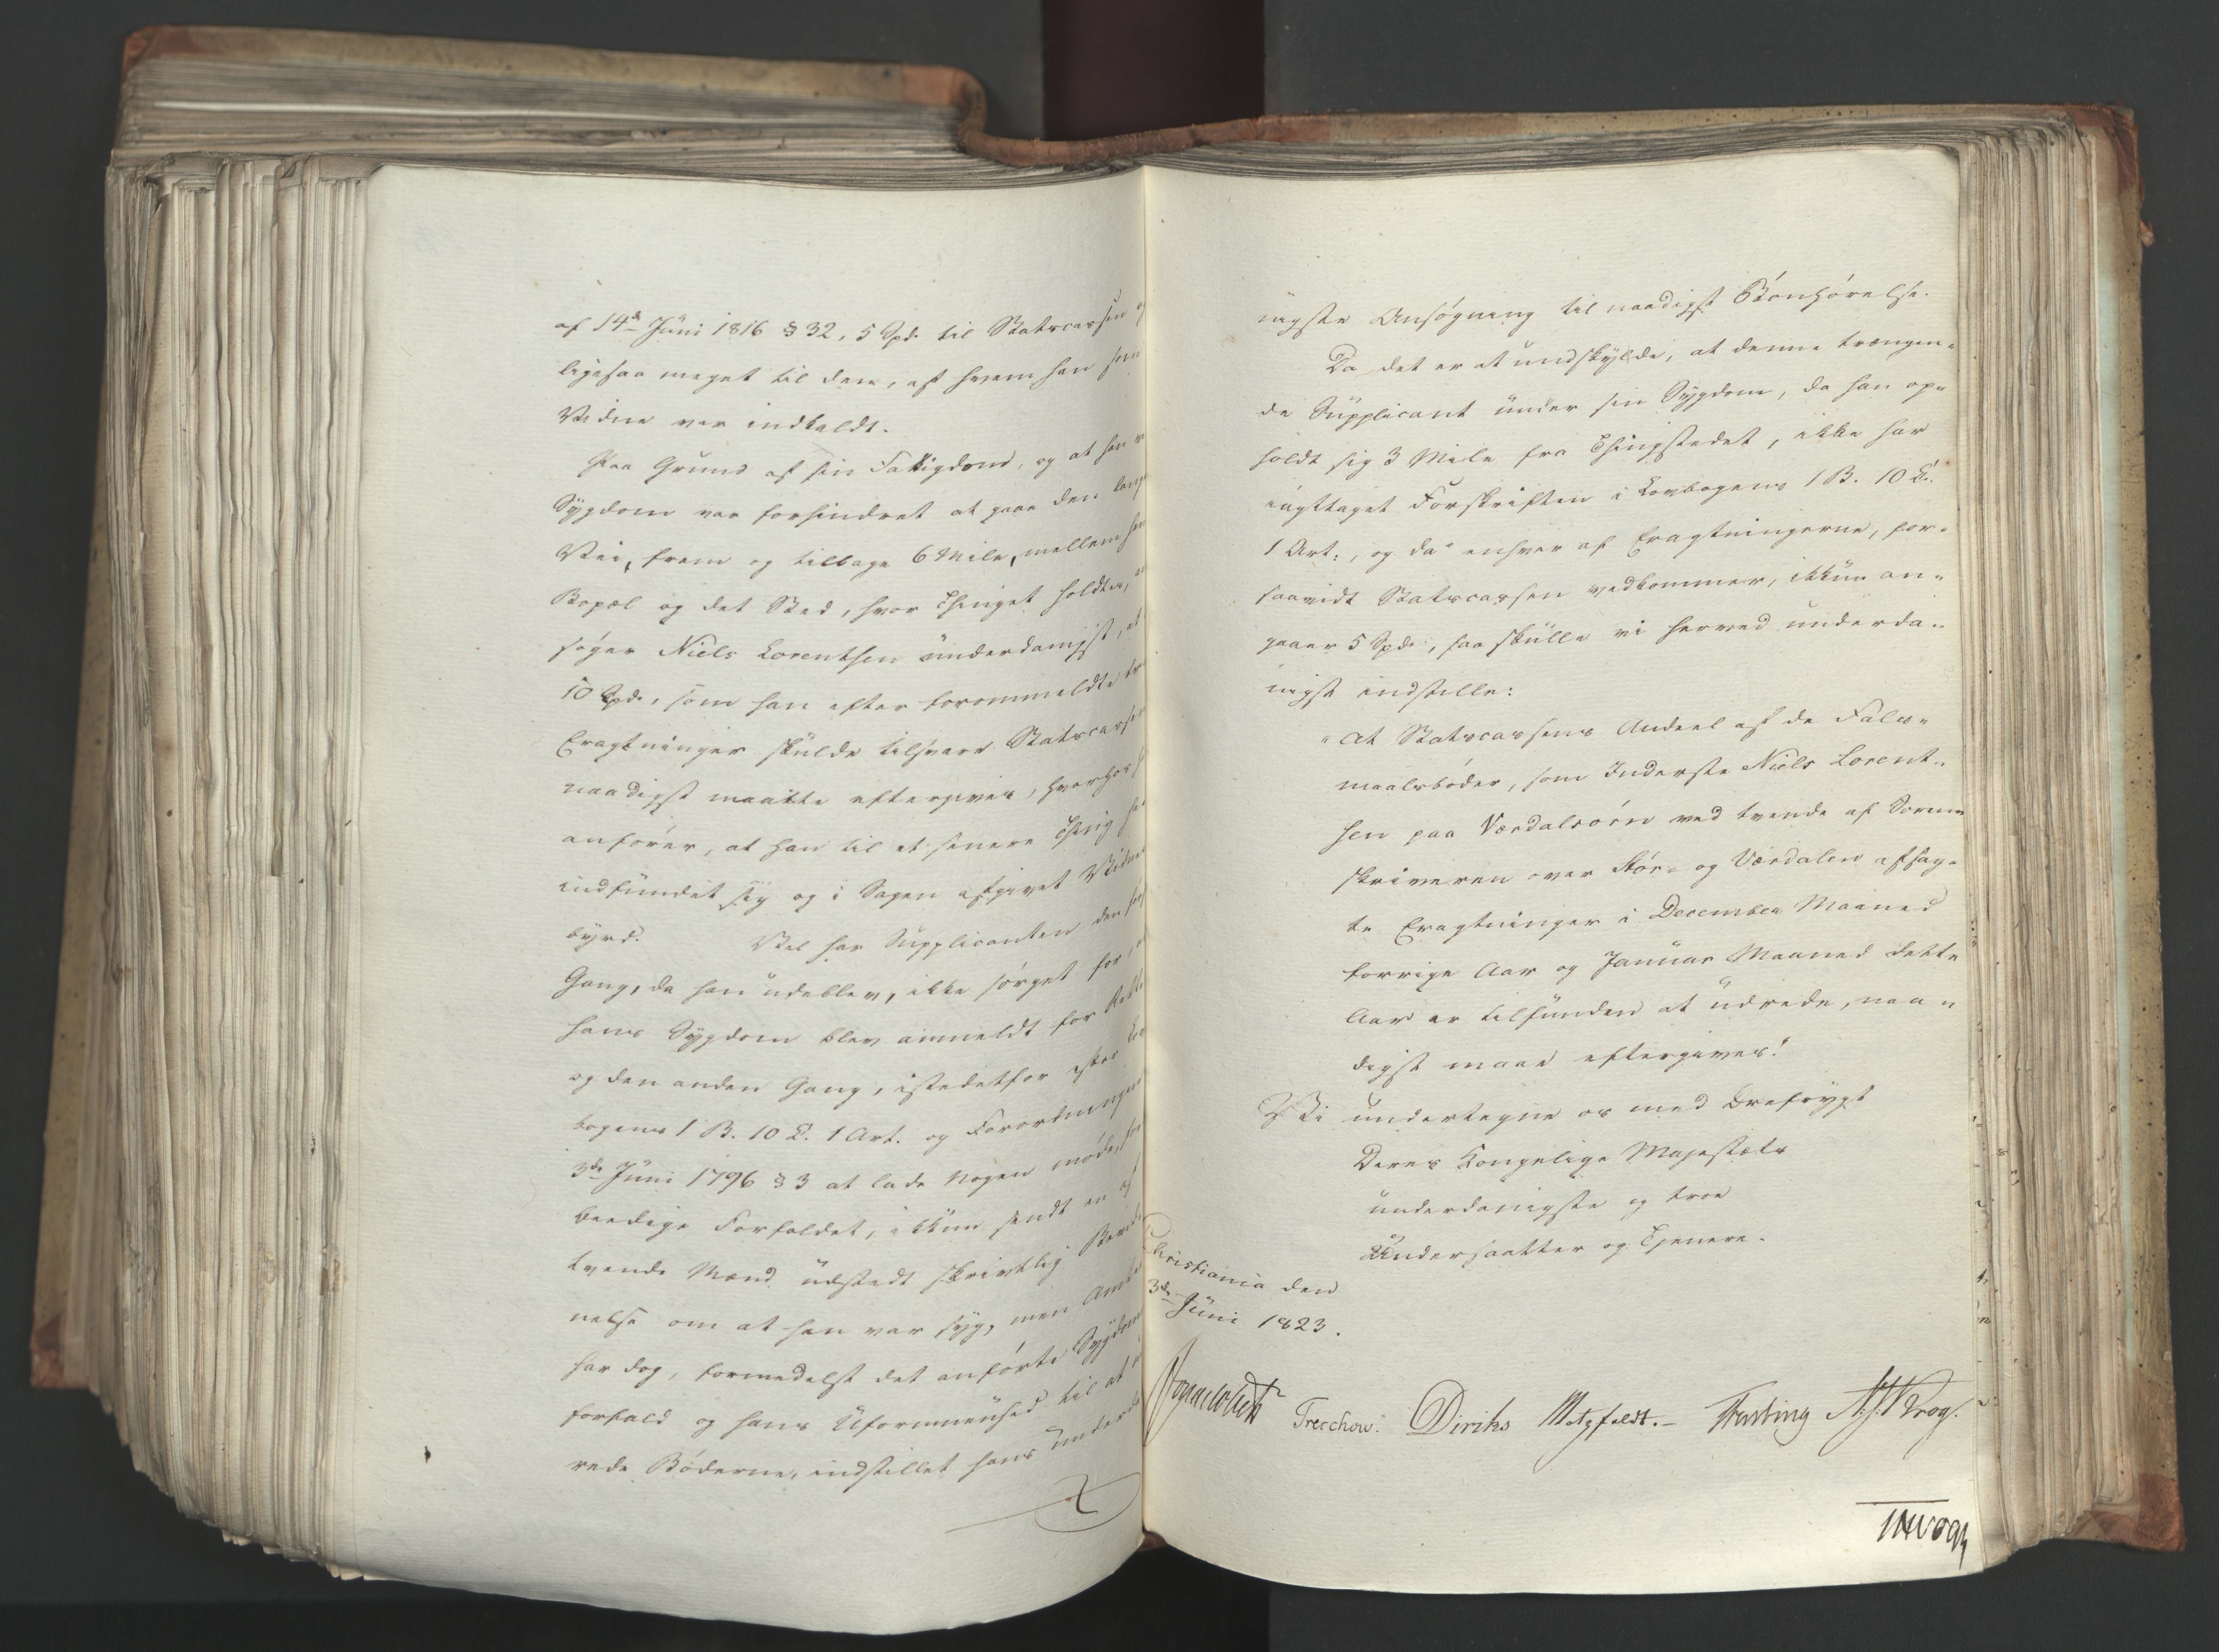 af 14de Juni 1816 § 32, 5 Spd. til Statscassen
ligesaa meget til den, af hvem han som
Vidne var indkaldt.
Paa Grund af sin Fattigdom, og at han
Sygdom var forhindret at gaae den
Vei, frem og tilbage 6 Mile, mellem
Bopæl og det Sted, hvor Thinget holdtes,
søger Niels Lorentsen underdanigst,
10 Spd., som han efter forommeldte
Eragtninger skulde tilsvare
naadigst maatte eftergives, hvorhos
anfører, at han til et senere Thing
indfundet sig og i Sagen afgivet
byrd. Vel har Supplicanten den
Gang, da han udeblev, ikke sørget for,
hans Sygdom blev anmeldt for
og den anden Gang, istedetfor efter
bogens 1 B. 10 C. 1 Art. og
3de Juni 1796 § 3 at lade Nogen møde,
beedige Forfaldet, ikkun sendt en af
tvende Mænd udstedt skrivtlig
nelse om at han var syg, men
har dog, formedelst det anførte
forfald og hans Uformuenhed til at
rede Bøderne, indstillet hans
nigste Ansøgning til naadigst Bønhørelse.
Da det er at undskylde, at denne trængen-
de Supplicant under sin Sygdom, da han op-
holdt sig 3 Mile fra Thingstedet, ikke har
iagttaget Forskriften i Lovbogens 1 B. 10 C.
1 Art:, og da enhver af Eragtningerne, for-
saavidt Statscassen vedkommer, ikkun an-
gaaer 5 Spd., saa skulle vi herved underda-
nigst indstille:
"At Statscassens Andeel af de Fals-
maalsbøder, som Inderste Niels Lorent-
sen paa Værdalsøren ved tvende af Soren-
skriveren over Stør- og Værdalen afsag-
te Eragtninger i December Maaned
forrige Aar og Januar Maaned dette
Aar er tilfunden at udrede, naa-
digst maae eftergives."
Vi undertegne os med Ærefrygt
Deres Kongelige Majestæts
underdanigste og troe
Undersaatter og Tjenere.
Christiania den
3de Juni 1823.
Treschow. Diriks Motzfeldt. Fasting Krog.